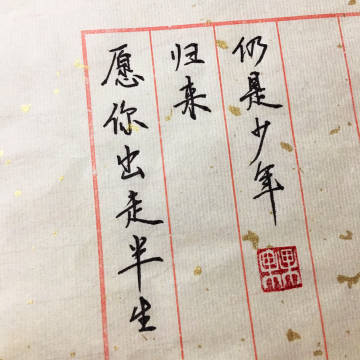 愿你出走半生
归来
仍是少年